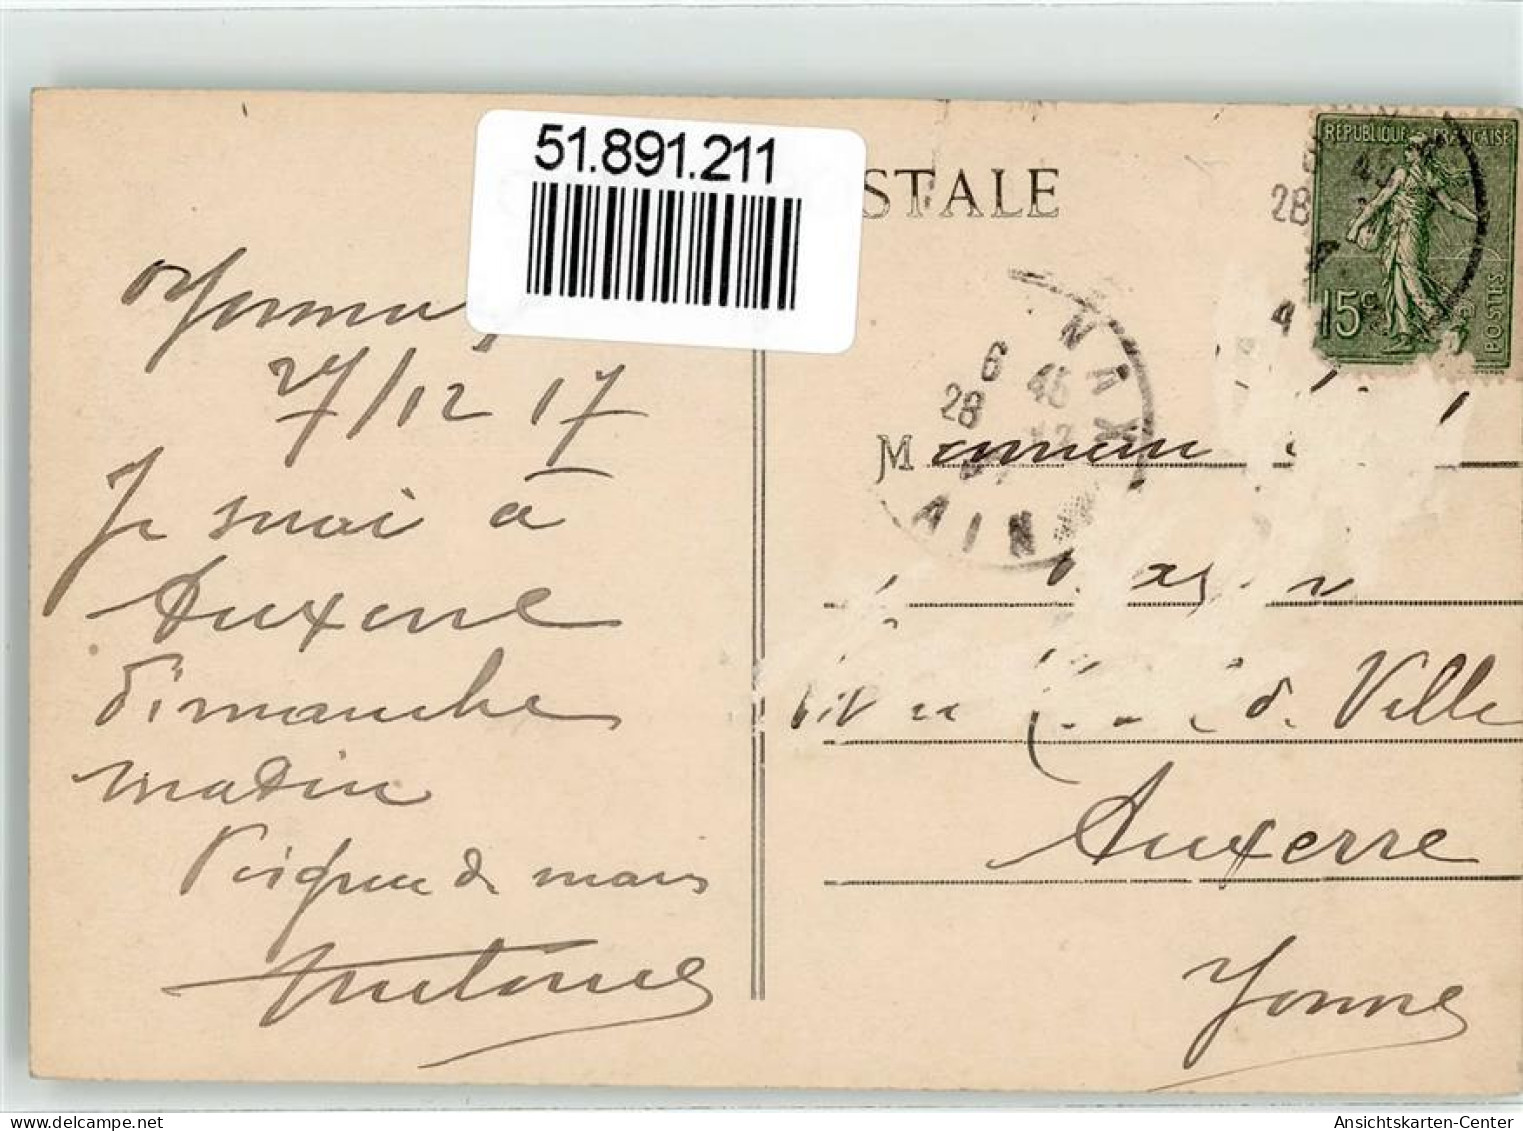 51.891.211
STALE
RÉPUBLIQUE FRANÇAISE
15c
POSTES
6 45
28
AIN
Oyonna
27/12 17
Je serai à
Auxerre
dimanche
matin
Poignée de main
Antoine
M
de Ville
Auxerre
Yonne
delcampe.net
Ansichtskarten-Center